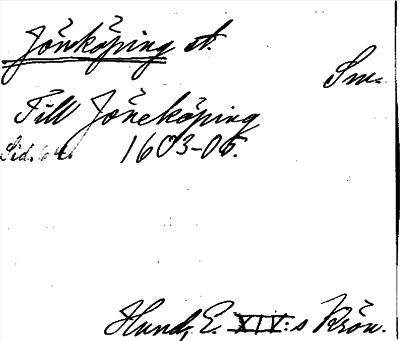 Jönköping st.
Sm.
Till Jöneköping
Sid. 64. 1603-05.
Hund, E. XIV:s Krön.